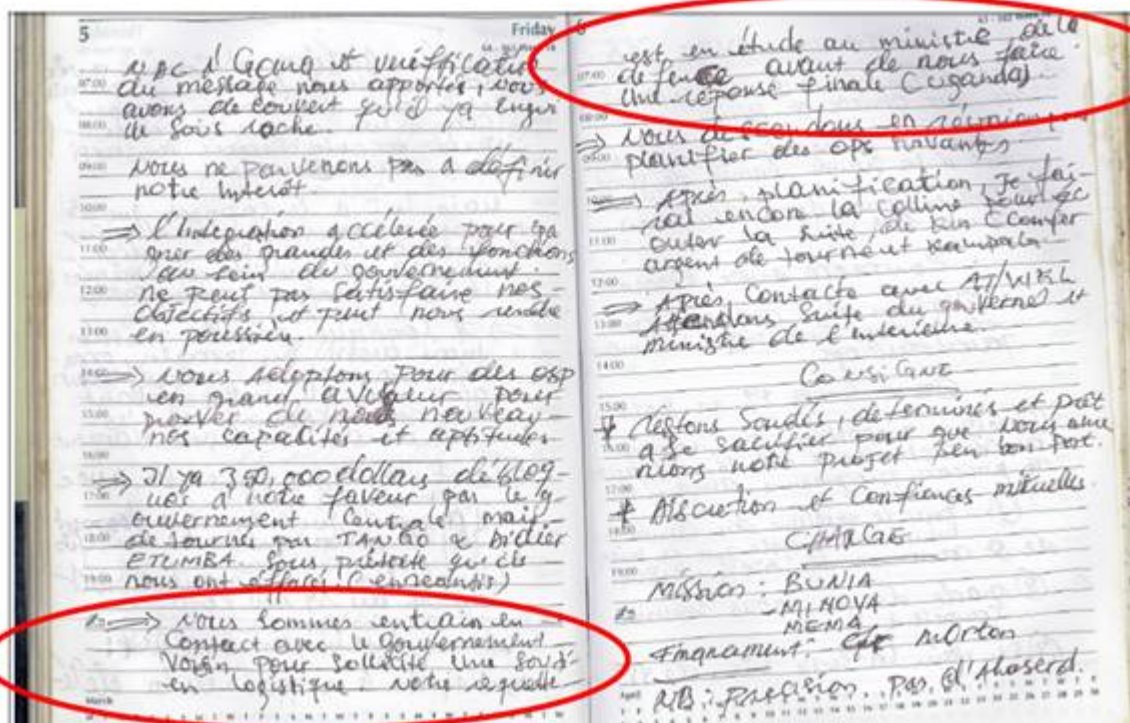 5
Friday
du message nous apporter, nous
avons de couvert qu'il ya
de sous cache.
Nous ne parvenons pas a définir
notre interêt.
⇒ l'integration accélerée pour ga
gner des grandes et des fonctions
au sein du gouvernement.
ne peut pas satisfaire nos
objectifs et peut nous rendre
en poussière.
⇒ Nous adoptons pour des
en grand pour
prover de nouveau
nos capacités et aptitudes
⇒ Il ya 350,000 dollars débloq-
ués a notre faveur par le g-
ouvernement Centrale mais
detournés par TANGO & Didier
ETUMBA. Sous pretexte qu'ils
nous ont effacé
⇒ Nous sommes entrain en
Contact avec le gouvernement
Voisin pour sollicité une souti-
en logistique. Notre requette
March
6
est en étude au ministre de la
defence avant de nous faire
une reponse finale (Uganda)
⇒ Nous descendons en réunion
planifier des ops suivantes
⇒ Après planification, je fai-
rai encore la colline pour éc
outer la suite de
argent de et Kampala
⇒ Après Contacte avec
Attendons suite du gouverne et
ministre de l'interieure.
CONSIGNE
Restons Soudés, determinés et prêt
a se sacrifier pour que nous ame
nions notre projet bon port.
Discretion et Confiances mituelles.
CHARGE
Mission: BUNIA
- MINOVA
MEMA
Financament: Morton
NB: Pas
April